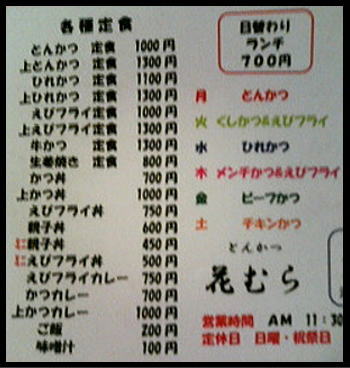 各種定食
とんかつ 定食 1000円
上とんかつ 定食 1300円
ひれかつ 定食 1100円
上ひれかつ 定食 1300円
えびフライ定食 1000円
上えびフライ定食 1300円
牛かつ 定食 1300円
生姜焼き 定食 800円
かつ丼 700円
上かつ丼 1000円
えびフライ丼 750円
親子丼 600円
ミニ親子丼 450円
ミニえびフライ丼 500円
えびフライカレー 750円
かつカレー 700円
上かつカレー 1000円
ご飯 200円
味噌汁 100円
日替わり
ランチ
700円
月 とんかつ
火 くしかつ&えびフライ
水 ひれかつ
木 メンチかつ&えびフライ
金 ビーフかつ
土 チキンかつ
とんかつ
花むら
営業時間 AM 11:30
定休日 日曜・祝祭日